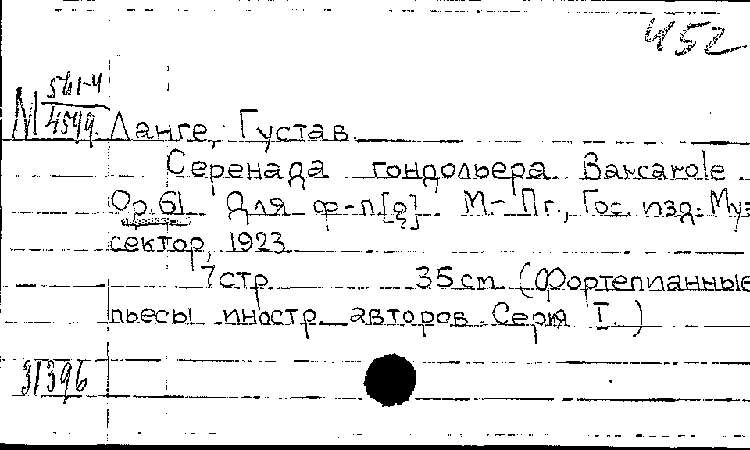 452
М 561-4
4599
Ланге, Густав.
Серенада гондольера. Barcarole
Op. 61. Для ф-п[о]. М.-Пг., Гос. изд. Муз
сектор, 1923
7 стр. 35 cm (Фортепианные
пьесы иностр. авторов. Серия I.)
31396